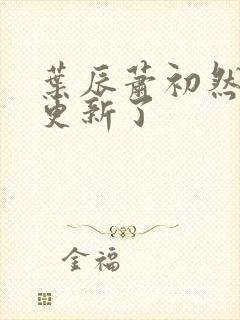 葉辰蕭初然
更新了
金福